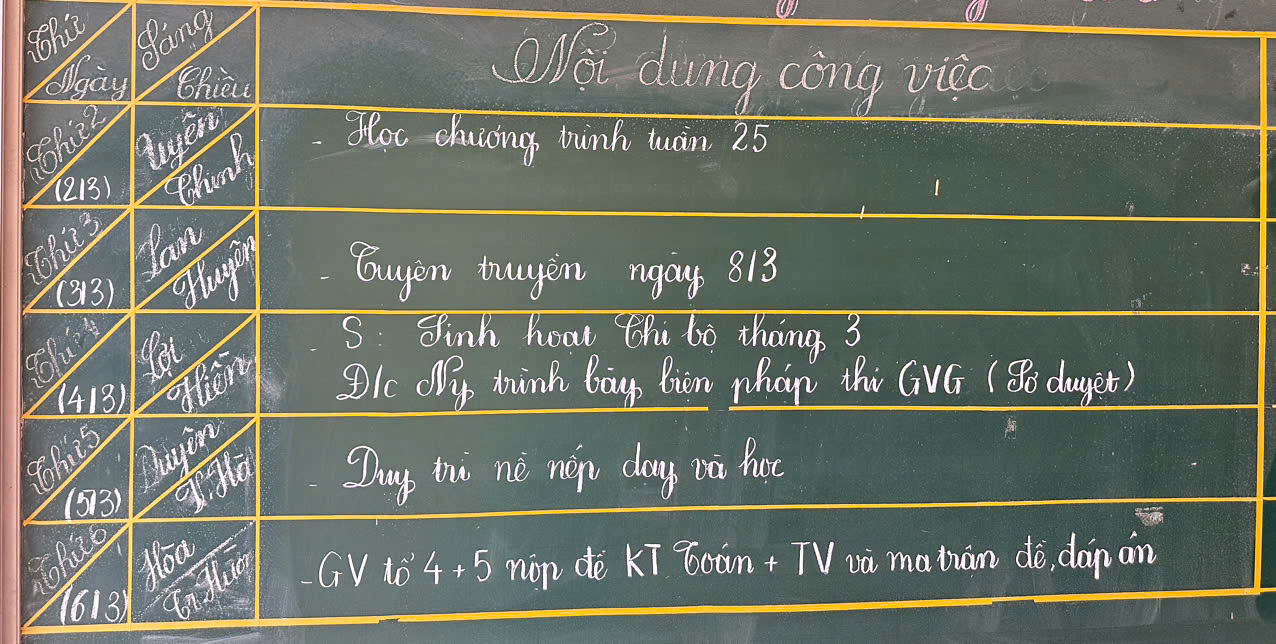 Thứ Sáng
Ngày Chiều
Nội dung công việc
Thứ 2 Uyên
(2/3) Chinh
- Học chương trình tuần 25
Thứ 3 Lan
(3/3) Huyên
- Tuyên truyền ngày 8/3
Thứ 4 Lợi
(4/3) Hiền
- S: Sinh hoạt Chi bộ tháng 3
Đ/c Ny trình bày biện pháp thi GVG (Sơ duyệt)
Thứ 5 Duyên
(5/3) Hà
- Duy trì nề nếp dạy và học
Thứ 6 Hòa
(6/3)
- GV tổ 4 + 5 nộp đề KT Toán + TV và ma trận đề, đáp án